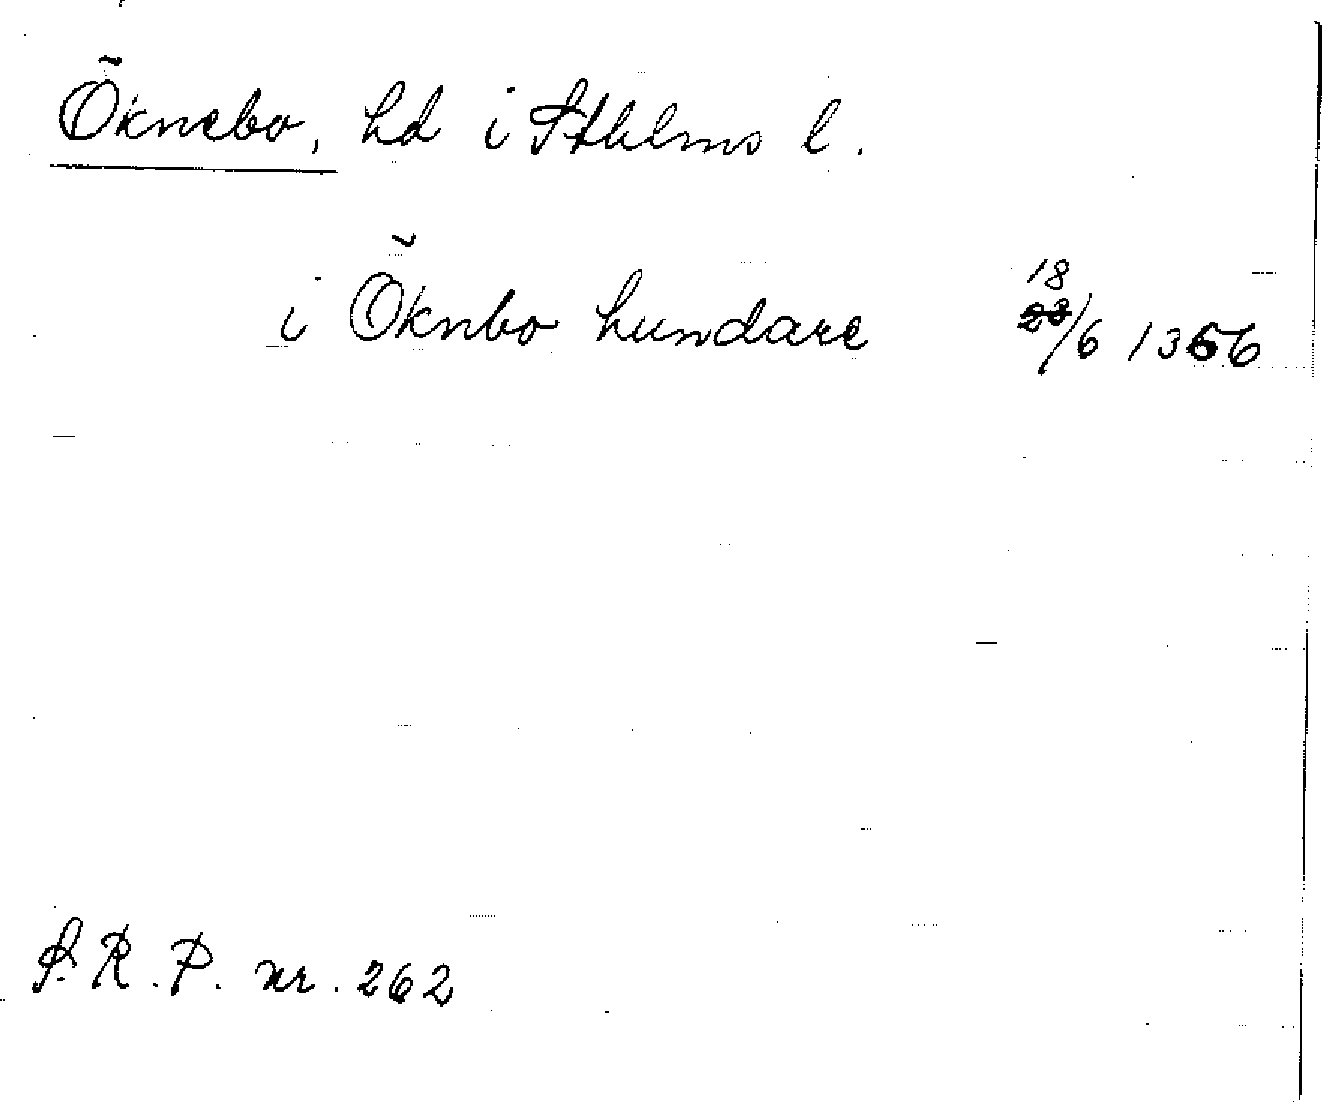 Öknebo, hd i Sthlms l.
i Öknbo hundare 18/6 1356
S.R.P. nr. 262